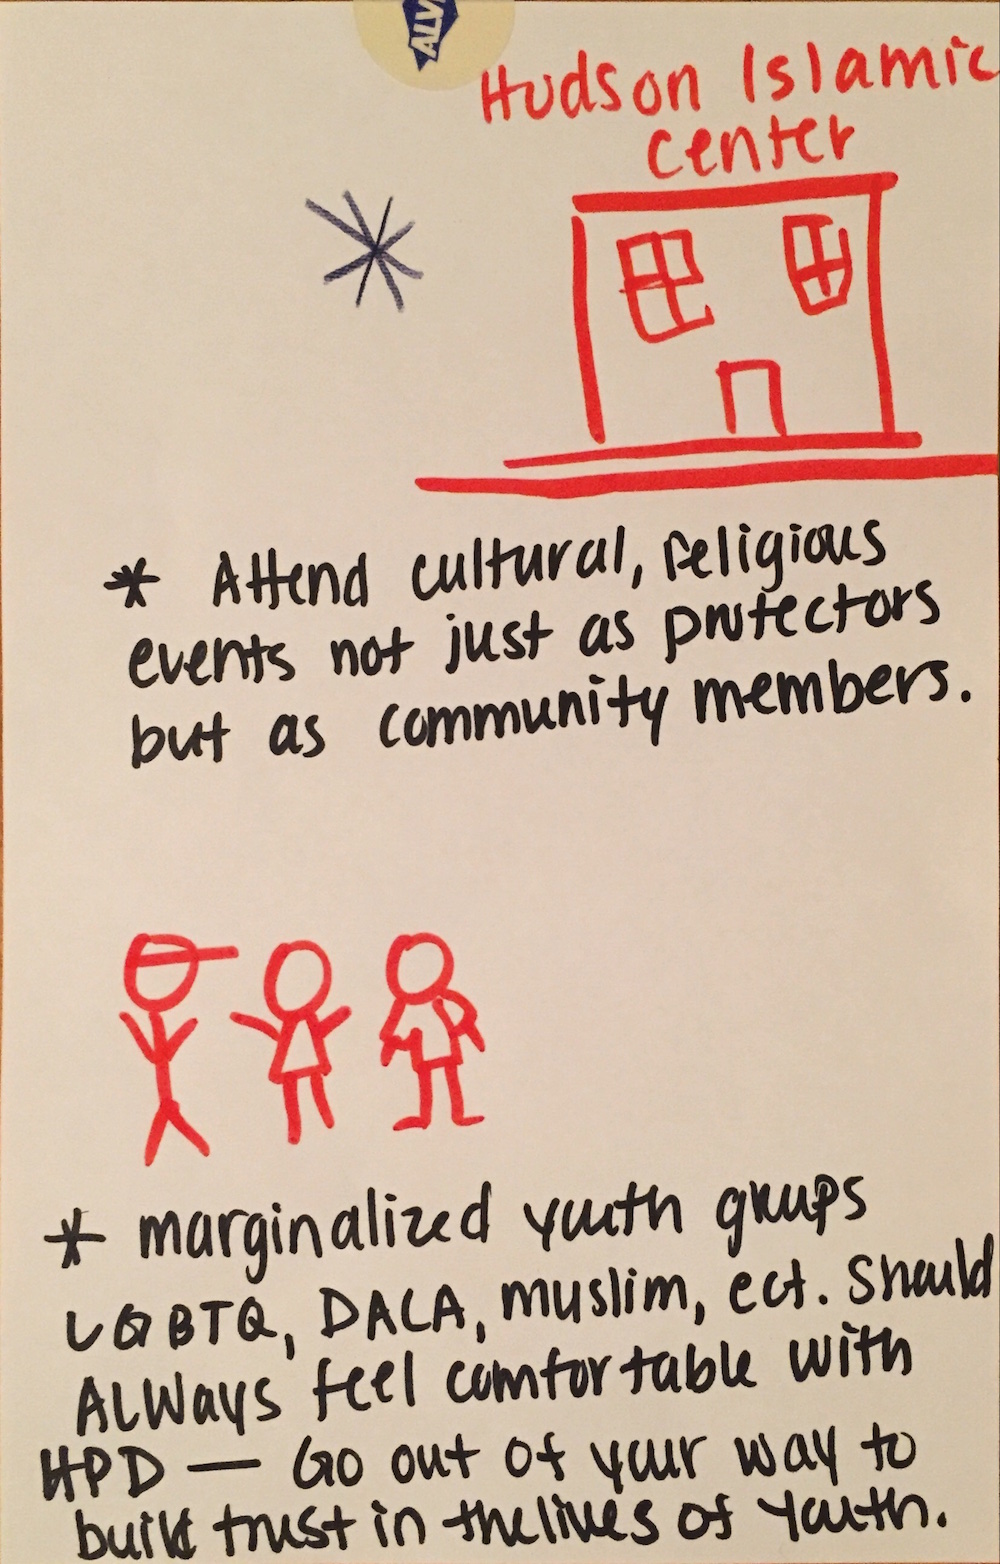 ALV
Hudson Islamic
center
* Attend cultural, religious
events not just as protectors
but as community members.
* marginalized youth groups
LGBTQ, DACA, muslim, ect. Should
ALWays feel comfortable with
HPD — Go out of your way to
build trust in the lives of youth.